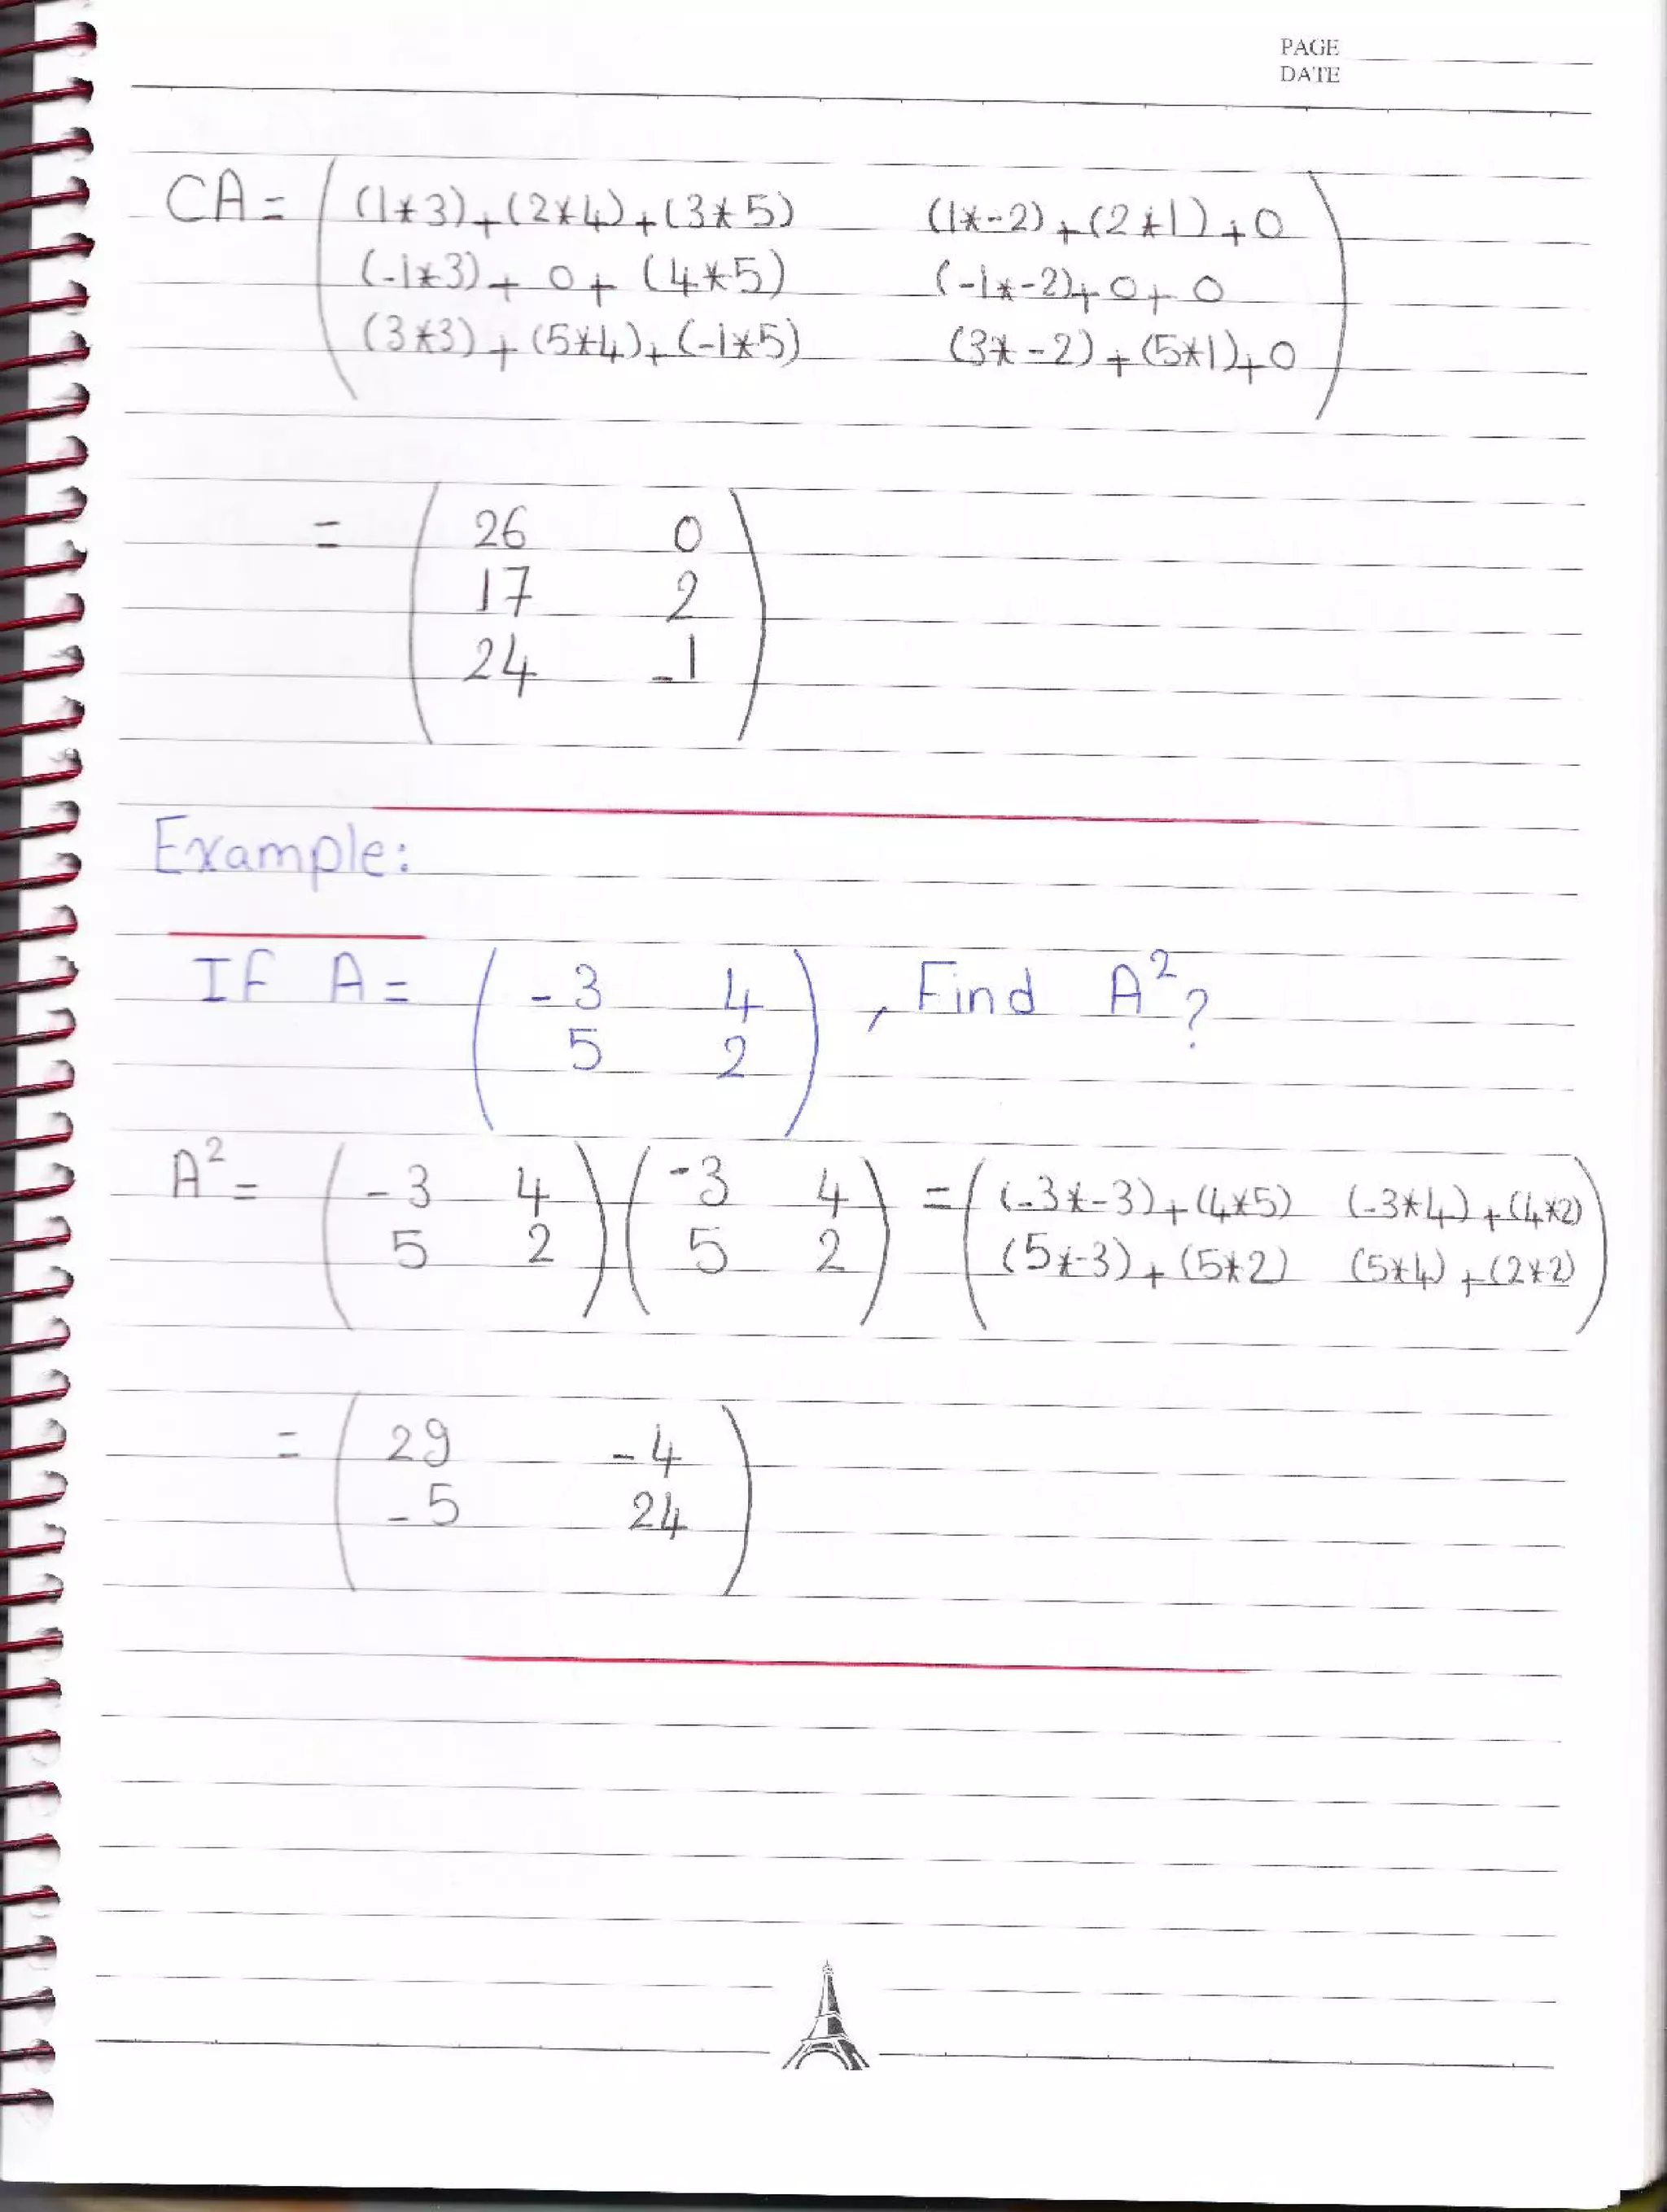 PAGE
DATE
CA = ( (1*3)+(2*4)+(3*5) (1*-2)+(2*1)+0
(-1*3)+ 0 + (4*5) (-1*-2)+0+ 0
(3*3)+(5*4)+(-1*5) (3*-2)+(5*1)+0 )
= ( 26 0
17 2
24 -1 )
Example:
If A = ( -3 4 ) , Find A²?
5 2
A² = ( -3 4 ) ( -3 4 ) = ( (-3*-3)+(4*5) (-3*4)+(4*2) )
5 2 5 2 (5*-3)+(5*2) (5*4)+(2*2)
= ( 29 -4 )
-5 24